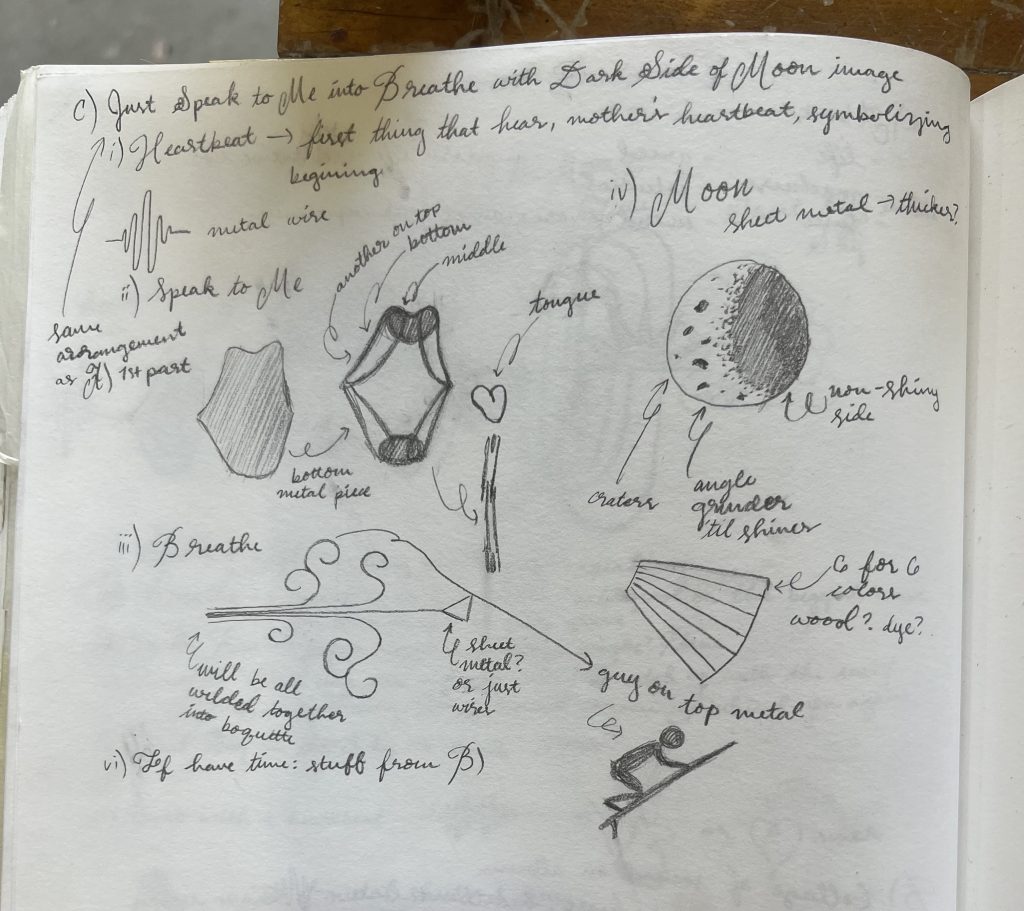 C) Just Speak to Me into Breathe with Dark Side of Moon image
i) Heartbeat → first thing that hear, mother's heartbeat, symbolizing
begining
metal wire
ii) Speak to Me
same
arrangement
as A) 1st part
another on top
bottom
middle
bottom
metal piece
tongue
iv) Moon
sheet metal → thicker?
non-shiny
side
craters
angle
grinder
'til shiner
iii) Breathe
will be all
welded together
into boquette
sheet
metal?
or just
wires
6 for 6
colors
woool? dye?
guy on top metal
vi) If have time: stuff from B)